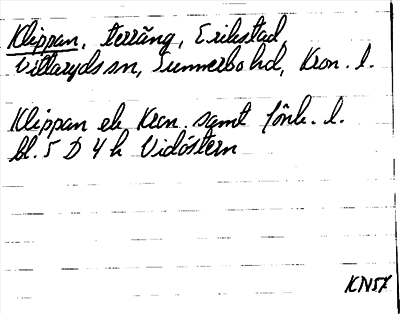 Klippan, terräng, Erikstad
Vittaryds sn, Sunnerbo hd, Kron. l.
Klippan ek Kron. samt Jönk. l.
bl. 5 D 4 h Vidöstern
KN57